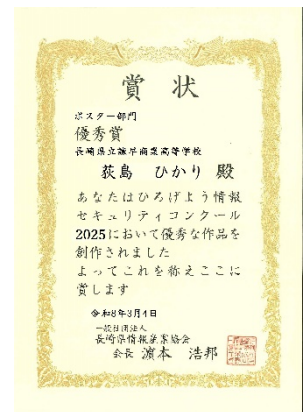 賞状
ポスター部門
優秀賞
長崎県立諫早商業高等学校
荻島 ひかり 殿
あなたはひろげよう情報
セキュリティコンクール
2025において優秀な作品を
創作されました
よってこれを称えここに
賞します
令和8年3月4日
一般社団法人
長崎県情報産業協会
会長 濵本 浩邦